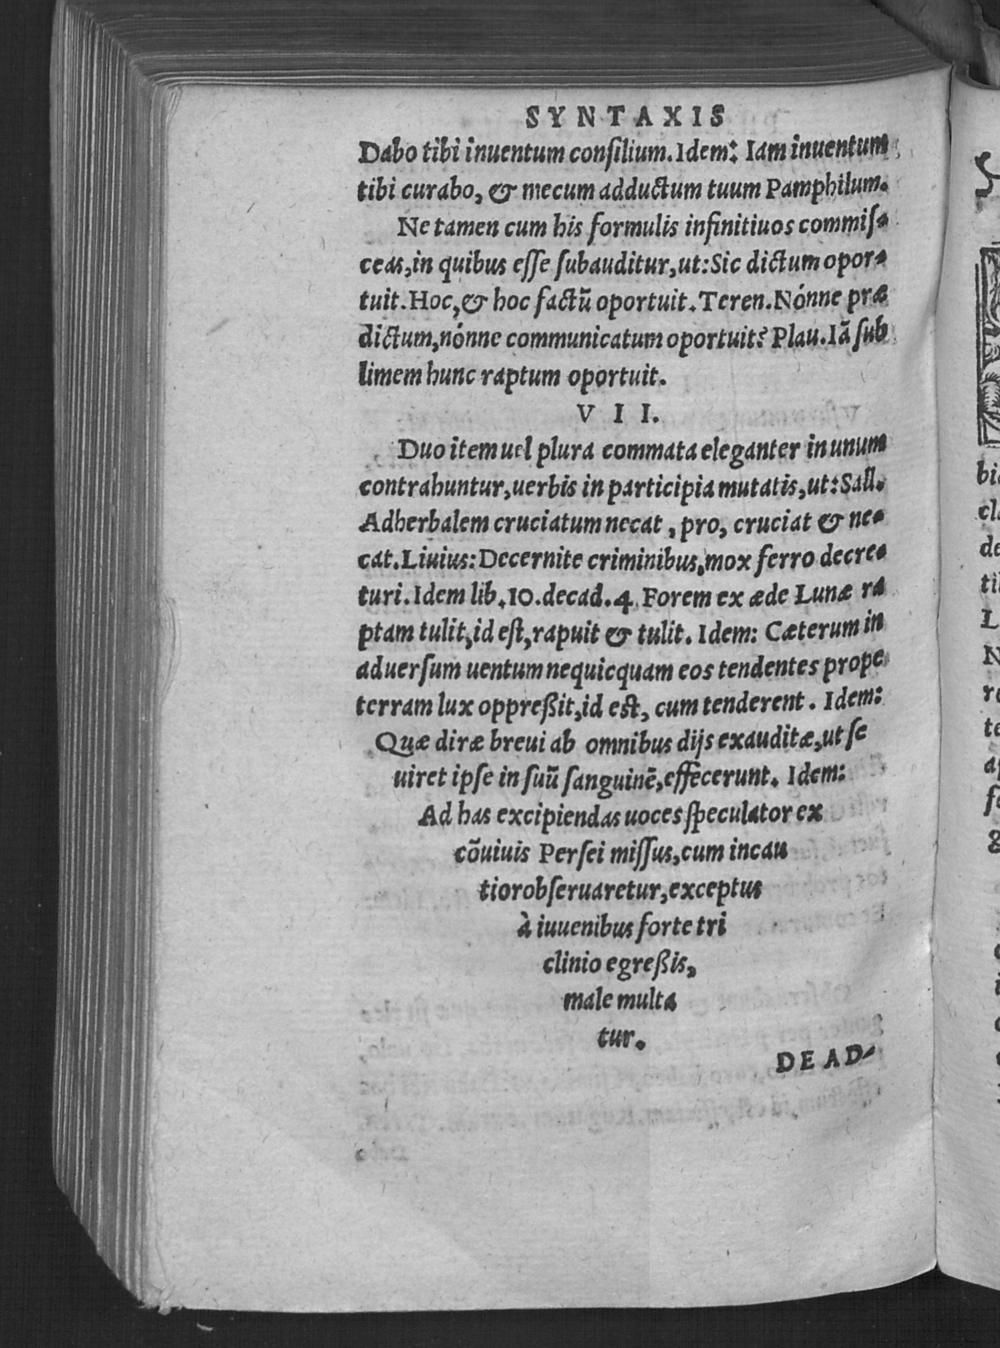 SYNTAXIS
Dabo tibi inuentum conſilium. Idem: Iam inuentum
tibi curabo, & mecum adductum tuum Pamphilum.
Ne tamen cum his formulis infinitiuos commiſ-
ceas, in quibus eſſe ſubauditur, ut: Sic dictum opor-
tuit. Hoc, & hoc factũ oportuit. Teren. Nónne præ
dictum, nónne communicatum oportuit? Plau. Iã ſub
limem hunc raptum oportuit.
VII.
Duo item uel plura commata eleganter in unum
contrahuntur, uerbis in participia mutatis, ut: Sall.
Adherbalem cruciatum necat, pro, cruciat & ne-
cat. Liuius: Decernite criminibus, mox ferro decre-
turi. Idem lib. 10. decad. 4. Forem ex æde Lunæ ra
ptam tulit, id eſt, rapuit & tulit. Idem: Cæterum in
aduerſum uentum nequicquam eos tendentes prope
terram lux oppreßit, id eſt, cum tenderent. Idem:
Quæ diræ breui ab omnibus dijs exauditæ, ut ſe
uiret ipſe in ſuũ ſanguinẽ, effecerunt. Idem:
Ad has excipiendas uoces ſpeculator ex
cõuiuis Perſei miſſus, cum incau
tior obſeruaretur, exceptus
à iuuenibus forte tri
clinio egreßis,
male multa
tur.
DE AD-
bi
cl
de
til
L
N
re
te
ap
g